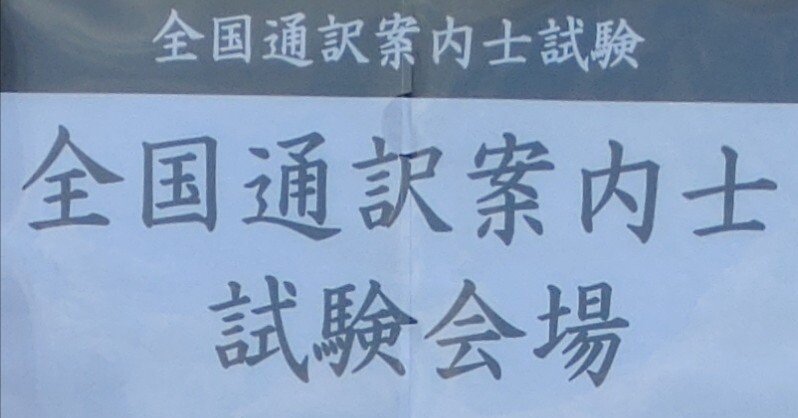 全国通訳案内士試験
全国通訳案内士
試験会場